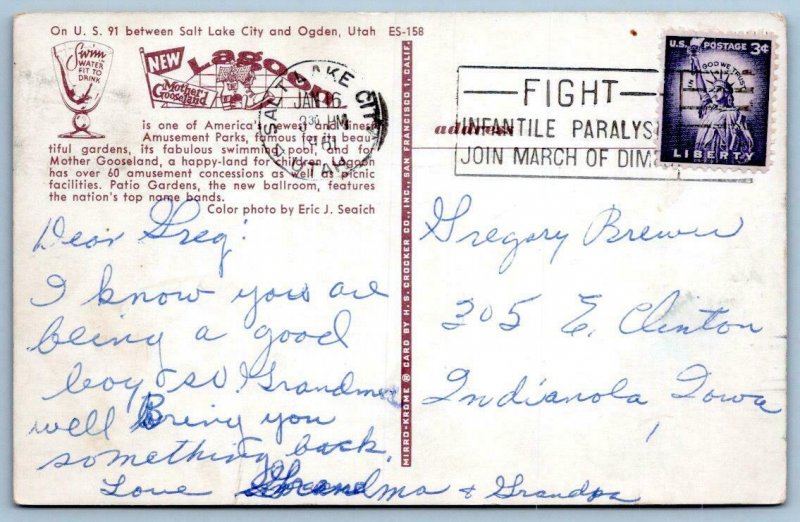 On U. S. 91 between Salt Lake City and Ogden, Utah ES-158
Swim in
WATER
FIT TO
DRINK
NEW
Lagoon
Mother
Gooseland
is one of America's newest and finest
Amusement Parks, famous for its beau-
tiful gardens, its fabulous swimming pool, and for
Mother Gooseland, a happy-land for children. Lagoon
has over 60 amusement concessions as well as picnic
facilities. Patio Gardens, the new ballroom, features
the nation's top name bands.
Color photo by Eric J. Seaich
SALT LAKE CITY
JAN 16
3 30 PM
1961
UTAH
FIGHT
INFANTILE PARALYS
JOIN MARCH OF DIM
address
U.S. POSTAGE 3¢
IN GOD WE TRUST
LIBERTY
MIRRO-KROME ® CARD BY H. S. CROCKER CO., INC., SAN FRANCISCO 1, CALIF.
Dear Greg:
I know you are
being a good
boy so Grandma
well Bring you
something back.
Love Grandma & Grandpa
Gregory Brewer
305 E. Clinton
Indianola Iowa